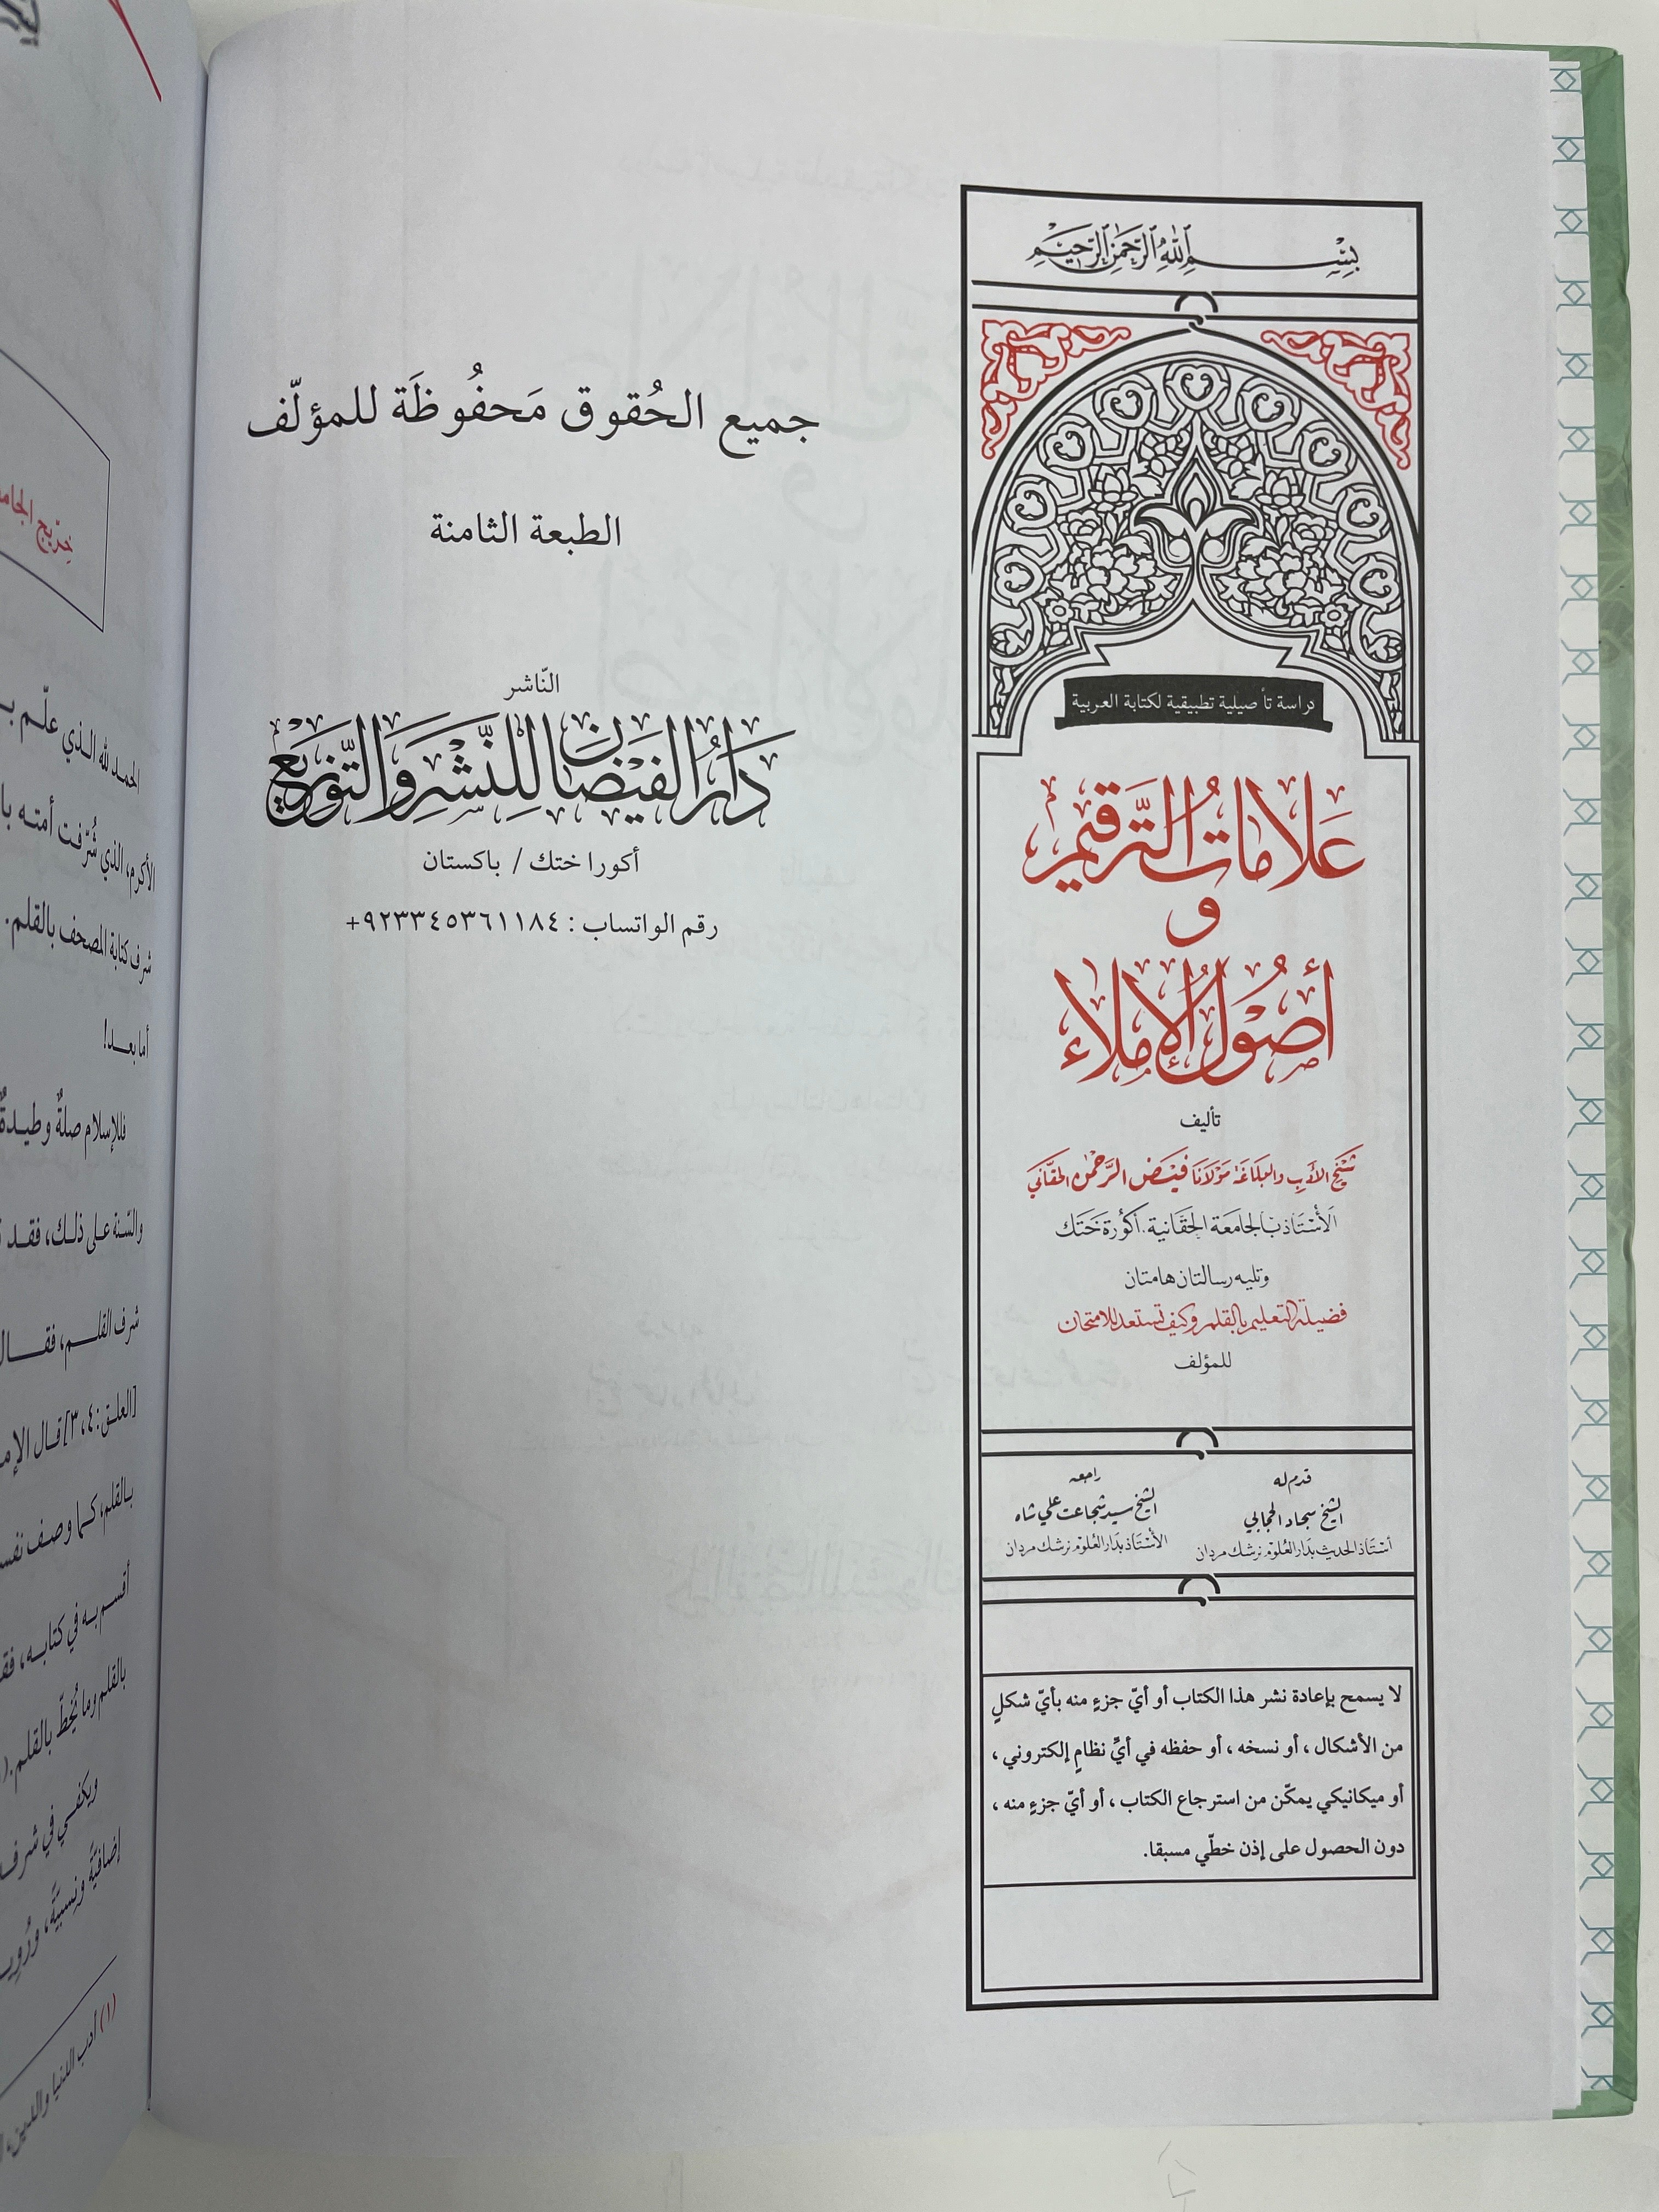 بِسْمِ اللَّهِ الرَّحْمَنِ الرَّحِيمِ
دراسة تأصيلية تطبيقية لكتابة العربية
علامات الترقيم
و
أصول الإملاء
تأليف
شيخ الأدب والبلاغة مولانا فيض الرحمن الحقاني
الأستاذ بالجامعة الحقانية. أكورة ختك
وتليه رسالتان هامتان
فضيلة التعليم بالقلم وكيف تستعد للامتحان
للمؤلف
قدم له
الشيخ سجاد الحجابي
أستاذ الحديث بدار العلوم نرشك مردان
راجعه
الشيخ سيد شجاعت علي شاه
الأستاذ بدار العلوم نرشك مردان
لا يسمح بإعادة نشر هذا الكتاب أو أيّ جزءٍ منه بأيّ شكلٍ
من الأشكال ، أو نسخه ، أو حفظه في أيِّ نظامٍ إلكتروني ،
أو ميكانيكي يمكّن من استرجاع الكتاب ، أو أيّ جزءٍ منه ،
دون الحصول على إذن خطّي مسبقا.
جميع الحُقوق مَحفُوظَة للمؤلّف
الطبعة الثامنة
النّاشر
دَارُ الفَيْضَانِ لِلنَّشْرِ وَالتَّوْزِيْعِ
أكورا ختك / باكستان
رقم الواتساب : ٩٢٣٣٤٥٣٦١١٨٤+
خرّيج الجام
الحمد لله الذي علّم بـ
الأكرم، الذي شُرّفت أمته با
شرف كتابة المصحف بالقلم.
أما بعد!
فللإسلام صلةٌ وطيدةٌ
والسّنة على ذلك، فقد
شرف القلم، فقال
[العلق: ٣،٤] قال الإم
بالقلم، كما وصف نفس
أقسم به في كتابه، فق
بالقلم وما يُخطّ بالقلم.(
ويكفي في شرف
إضافيّةً ونسبيّةً، ورُوي
(١) أدب الدنيا والدين،